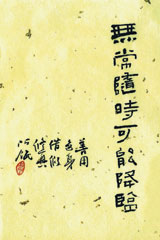 無常隨時可能降臨
善用
身
借假
修真